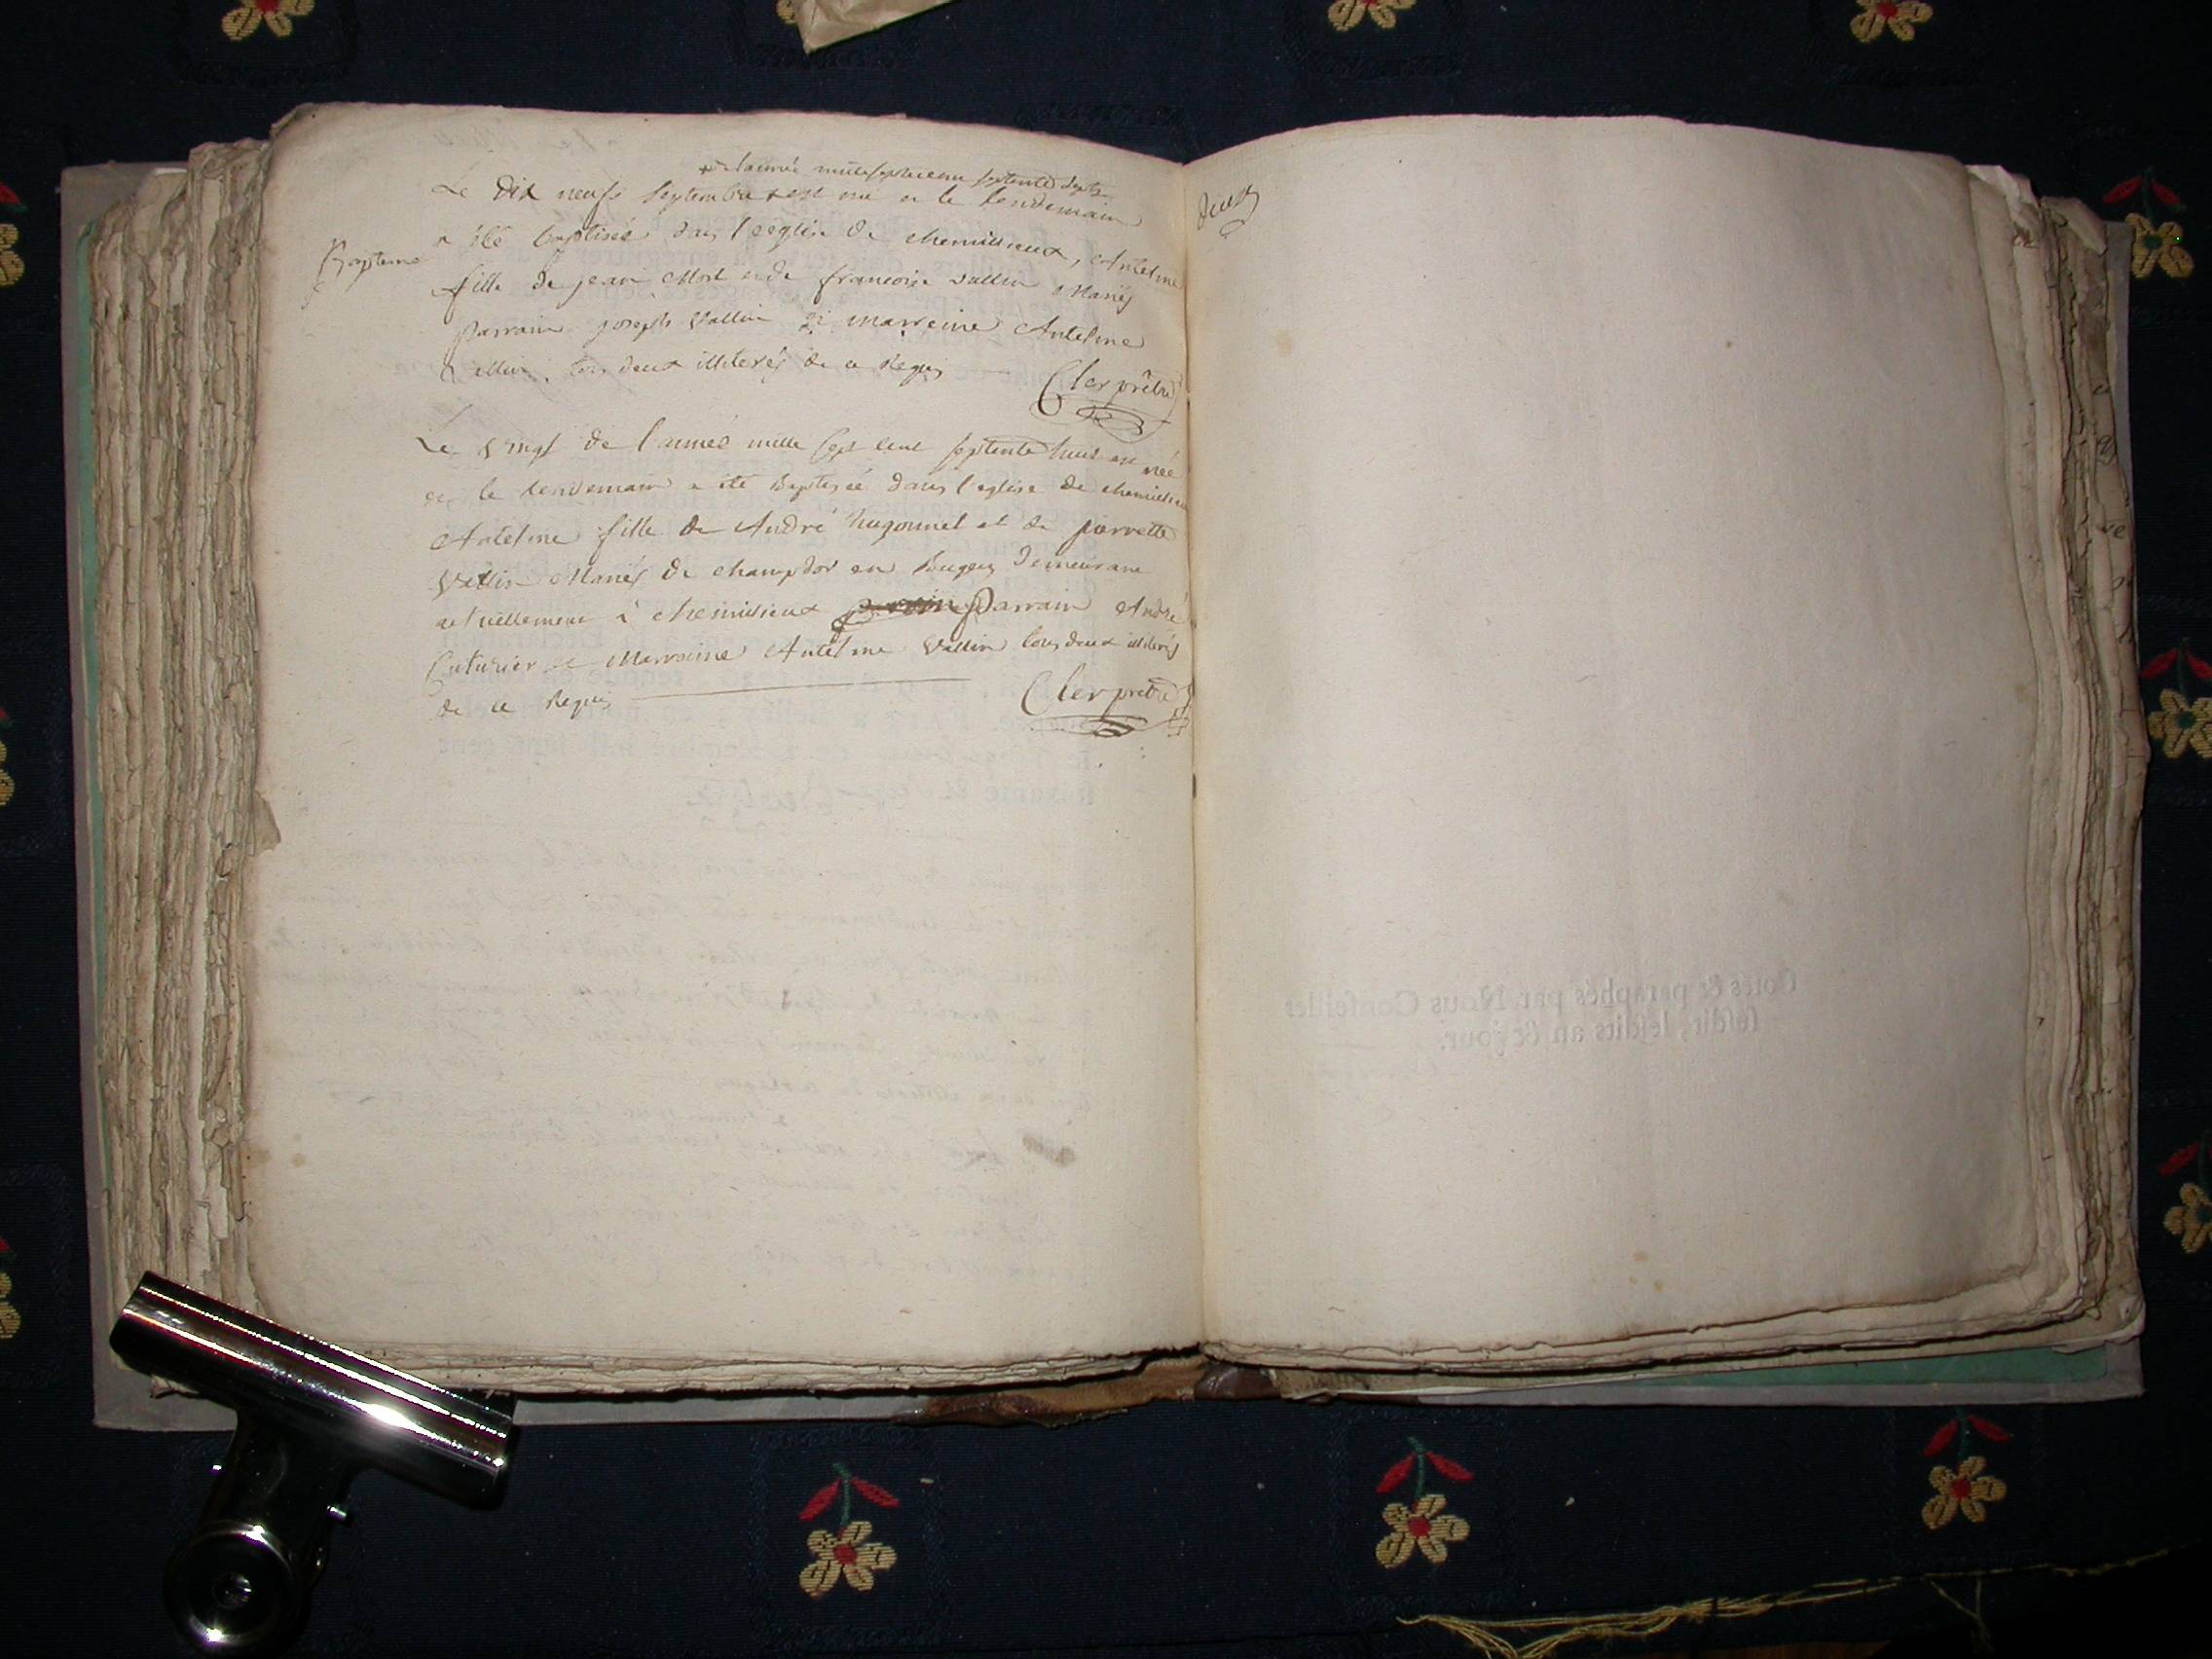 + de l'année mille sept cent septente sept
Le dix neufs septembre + est né et le lendemain
a été baptisée dans l'eeglise de chemillieux, Antelme
Bapteme
fille de jean Mort et de francoise vallin Mariés
parrain joseph Vallin et marreine Antelme
Vallin, tous deux illiterés de ce Requis
Cler prêtre
Le vingt de l'année mille sept cent septente huit est née
et le lendemain a été Baptisée dans l'eglise de chemillieux
Antelme fille de André hugonnet et de pierrette
Vallin Mariés de champdor en Bugey demeurant
actuellement à chemillieux parrain André
Cuturier et Marraine Antelme Vallin tous deux illiterés
de ce Requis
Cler pretre